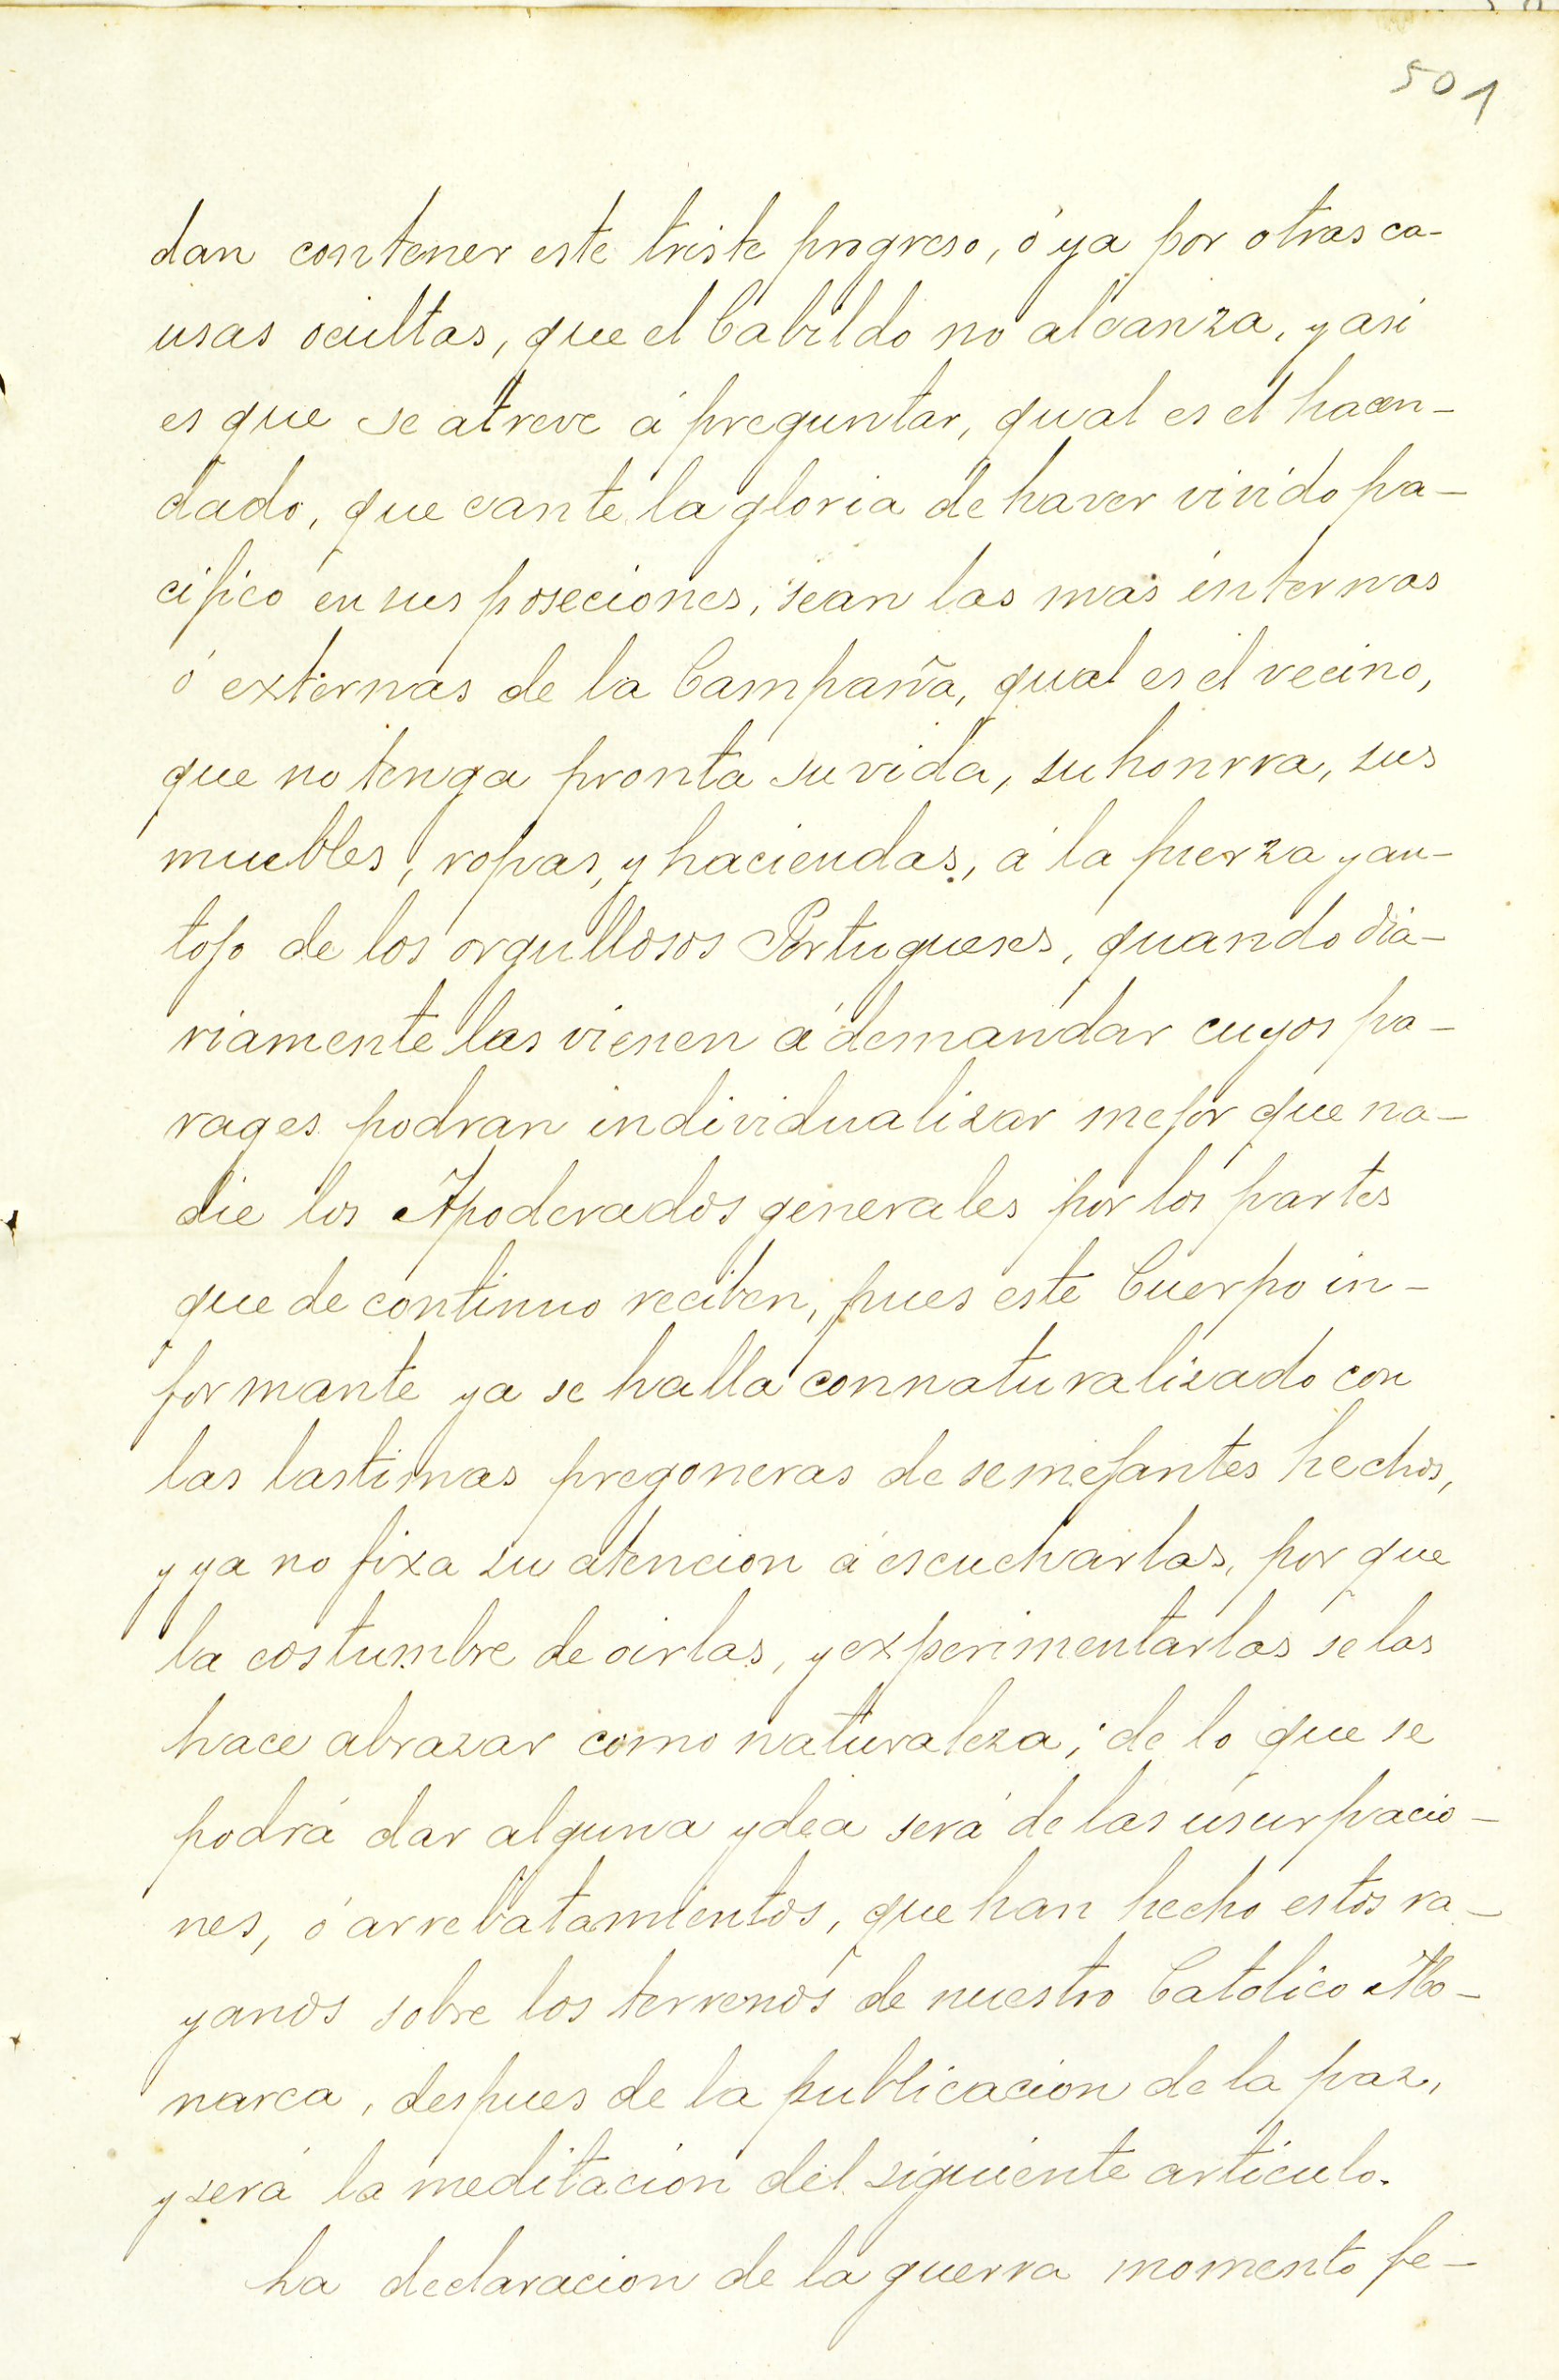 501
dan contener este triste progreso, ó ya por otras ca-
usas ocultas, que el Cabildo no alcanza, y asi
es que se atreve á preguntar, qual es el hacen-
dado, que cante la gloria de haver vivido pa-
cifico en sus poseciones, sean las mas internas
ó externas de la Campaña, qual es el vecino,
que no tenga pronta su vida, su honrra, sus
muebles, ropas, y haciendas, á la fuerza y an-
tojo de los orgullosos Portugueses, quando dia-
riamente las vienen á demandar cuyos pa-
rages podran individualizar mejor que na-
die los Apoderados generales por los partes
que de continuo reciben, pues este Cuerpo in-
formante ya se halla connaturalizado con
las lastimas pregoneras de semejantes hechos,
y ya no fixa su atencion á escucharlas, por que
la costumbre de oirlas, y experimentarlas se las
hace abrazar como naturaleza; de lo que se
podrá dar alguna ydea será de las usurpacio-
nes, ó arrebatamientos, que han hecho estos ra-
yanos sobre los terrenos de nuestro Catolico Mo-
narca, despues de la publicacion de la paz,
y será la meditacion del siguiente articulo.
La declaracion de la guerra momento fe-